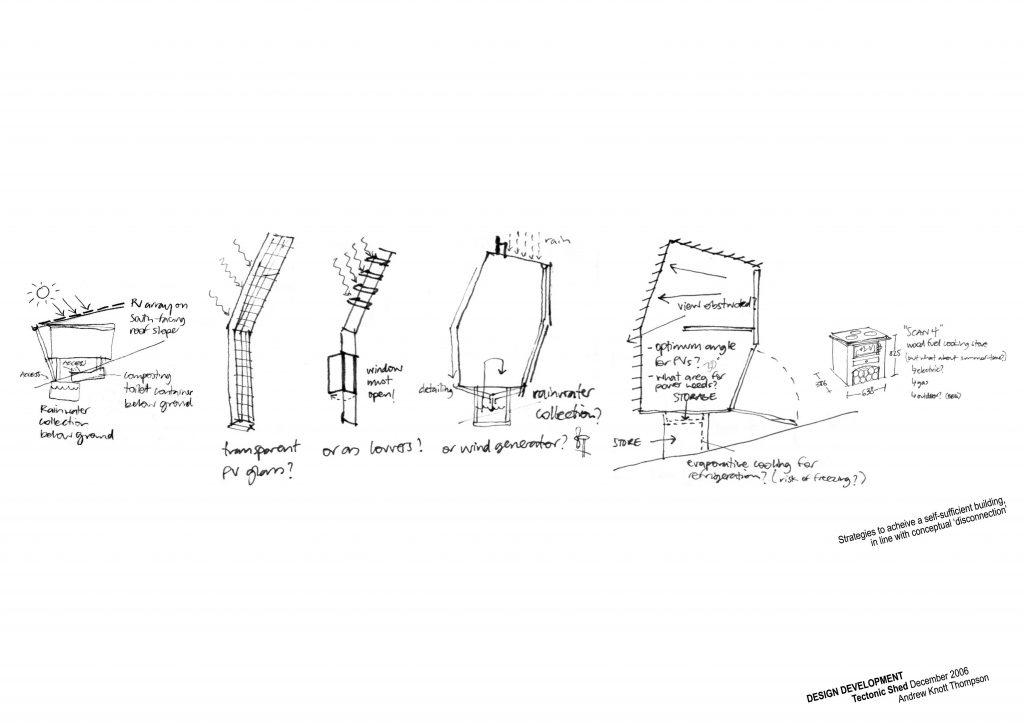 PV array on
South-facing
roof slope
ACCESS
ACCESS
composting
toilet container
below ground
Rainwater
collection
below ground
transparent
PV glass?
window
must
open!
or as louvres?
rain
detailing
rainwater
collection?
or wind generator?
view obstructed?
- optimum angle
for PVs?
- what area for
power needs?
STORAGE
STORE
evaporative cooling for
refrigeration? (risk of freezing?)
"SCAN 4"
wood fuel cooking stove
(but what about summer-time?)
electric?
gas
outdoor?
825
638
Strategies to acheive a self-sufficient building,
in line with conceptual 'disconnection'
DESIGN DEVELOPMENT
Tectonic Shed December 2006
Andrew Knott Thompson